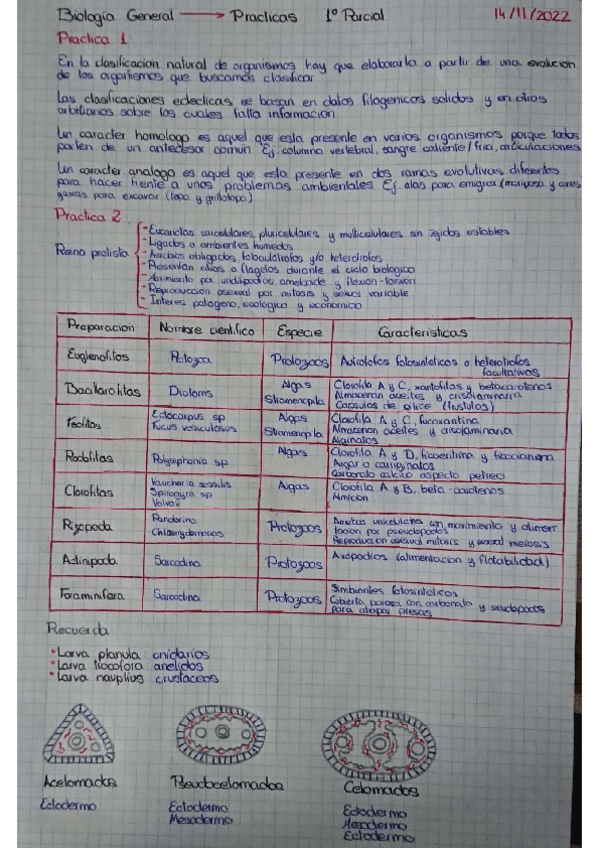 Biología General → Practicas 1º Parcial 14/11/2022
Practica 1
En la clasificacion natural de organismos hay que elaborarla a partir de una evolucion
de los organismos que buscamos clasificar
Las clasificaciones eclecticas se basan en datos filogenicos solidos y en otros
arbitrarios sobre los cuales falta informacion
Un caracter homologo es aquel que esta presente en varios organismos porque todos
parten de un antecesor comun Ej: columna vertebral, sangre caliente/fria, articulaciones
Un caracter analogo es aquel que esta presente en dos ramas evolutivas diferentes
para hacer frente a unos problemas ambientales Ej. alas para emigrar (mariposa y
garras para excavar (topo y grillotopo)
Practica 2
Reino protista
- Eucariotas unicelulares, pluricelulares y multicelulares sin tejidos estables
- Ligados a ambientes humedos
- Aerobios obligados, fotoautotrofos y/o heterotrofos
- Presentan cilios o flagelos durante el ciclo biologico
- Movimiento por undilipodios, ameboide y flexion-torsion
- Reproduccion asexual por mitosis y sexual variable
- Interes patogeno, ecologico y economico
Preparacion Nombre cientifico Especie Caracteristicas
Euglenofitos Protozoa Protozoos Autotofos fotosinteticos o heterotrofos
facultativos
Bacilarofitas Diatoms Algas
Stramenopila
Clorofila A y C, xantofilas y betacarotenos
Almacenan aceites y crisolaminaria
Capsulas de silice (frustulos)
Feofitas Ectocarpus sp
Fucus vesiculosus
Algas
Stramenopila
Clorofila A y C, fucoxantina
Almacenan aceites y crisolaminaria
Alginatos
Rodofitas Polysiphonia sp Algas Clorofila A y D, ficoeritrina y ficocianina
Agar o carraginatos
Carbonato calcico aspecto petreo
Clorofitas Vaucheria sessilis
Spirogyra sp
Volvox
Algas Clorofila A y B, beta-carotenos
Almidon
Rizopoda Pandorina
Chlamydomonas
Protozoos Amebas unicelulares con movimiento y aliment
tacion por pseudopodos
Reproduccion asexual mitosis y sexual meiosis
Actinipoda Sarcodina Protozoos Axopodios (alimentacion y flotabilidad)
Foraminifera Sarcodina Protozoos Simbiontes fotosinteticos
Cubierta porosa con carbonato y seudopodos
para atrapar presas
Recuerda
• Larva planula cnidarios
• Larva trocofora anelidos
• Larva nauplius crustaceos
Acelomados Pseudocelomados Celomados
Ectodermo Ectodermo Ectodermo
Mesodermo Mesodermo
Ectodermo